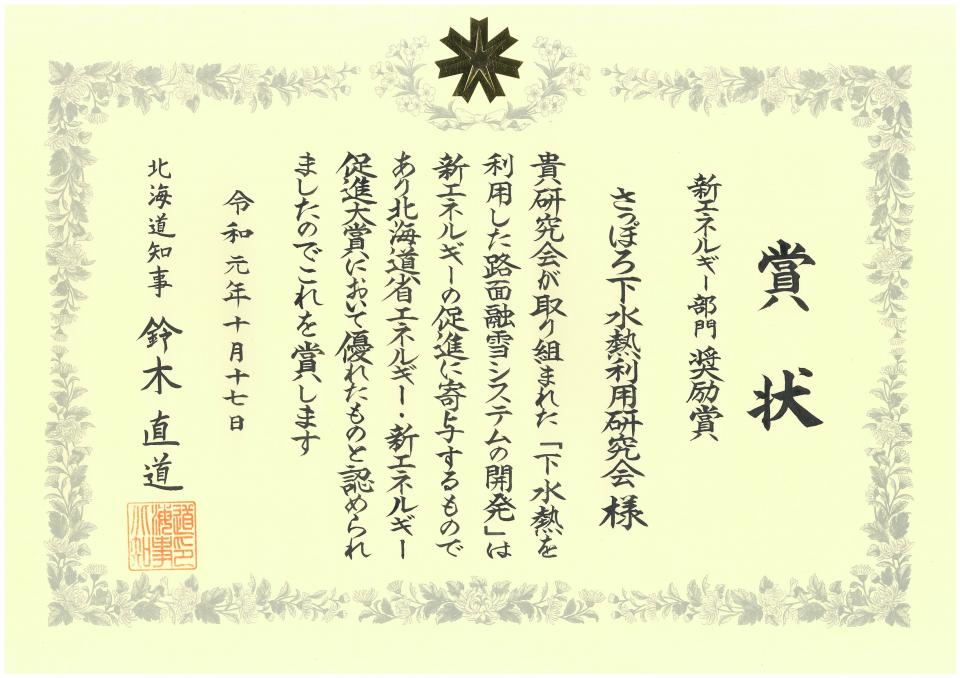 賞状
新エネルギー部門 奨励賞
さっぽろ下水熱利用研究会 様
貴研究会が取り組まれた「下水熱を
利用した路面融雪システムの開発」は
新エネルギーの促進に寄与するもので
あり北海道省エネルギー・新エネルギー
促進大賞において優れたものと認められ
ましたのでこれを賞します
令和元年十月十七日
北海道知事 鈴木直道